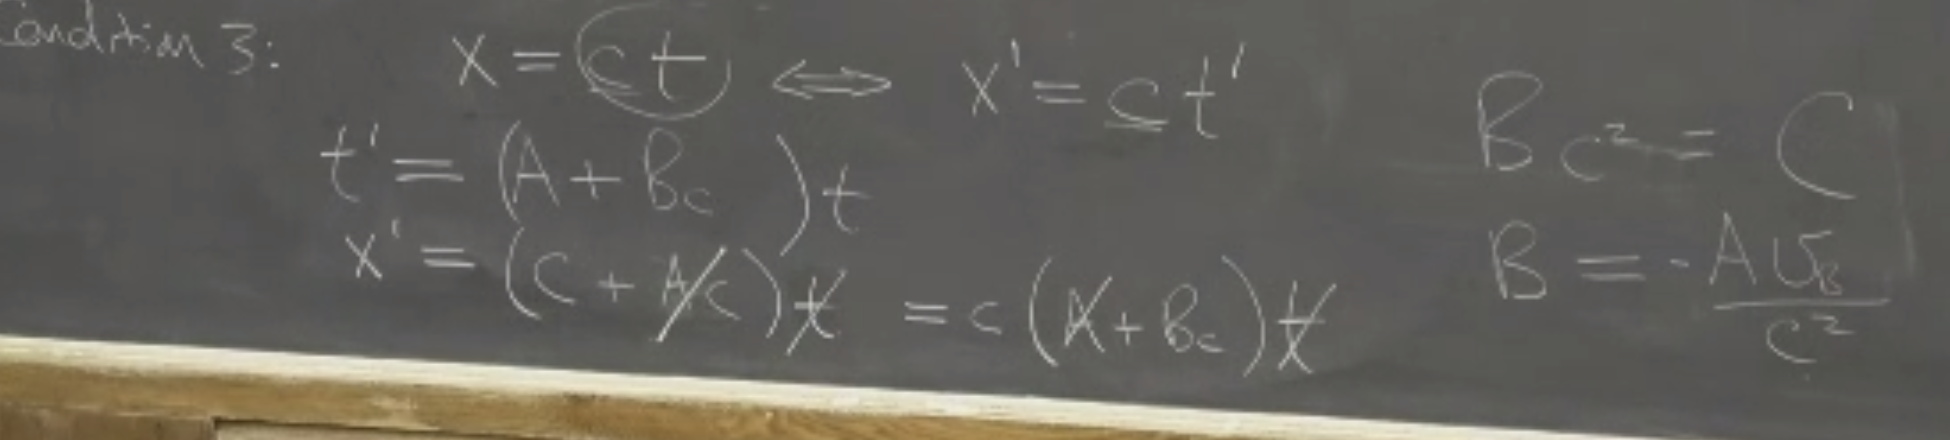 Condition 3: x = ct ⟺ x' = ct'
t' = (A + Bc)t
x' = (C + Ac)t = c(A + Bc)t
Bc² = C
B = -Av_B/c²